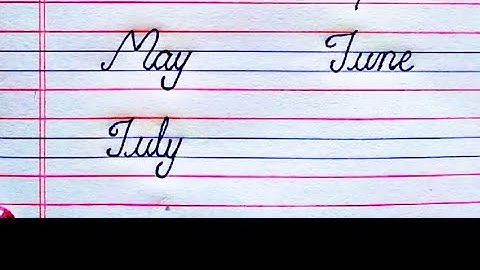 May June
July